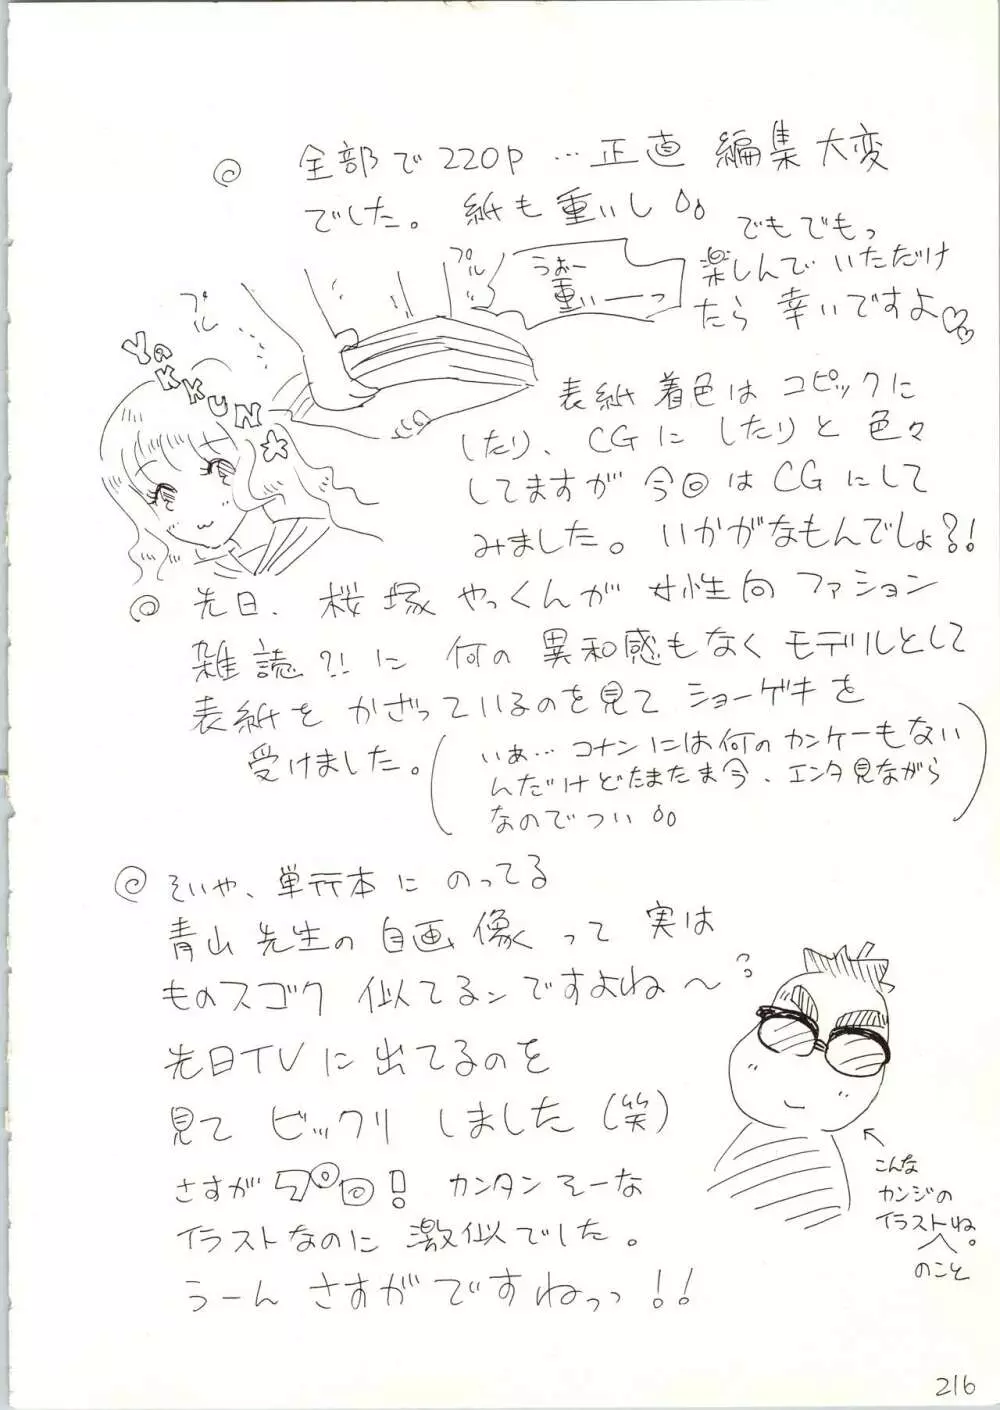 全部で220P…正直 編集大変
でした。紙も重いし
でもでもっ
楽しんでいただけ
たら 幸いですよ♡♡
プル
うおー
重いーっ
プル
YAKKUN☆
表紙着色は コピックに
したり、CGにしたりと 色々
してますが 今回は CGにして
みました。いかがなもんでしょ?!
◎ 先日、桜塚やっくんが 女性向 ファション
雑誌?!に 何の 異和感もなく モデルとして
表紙を かざっているのを見て ショーゲキを
受けました。
(いあ…コナンには何のカンケーもない
んだけどたまたま今、エンタ見ながら
なのでつい)
◎ そいや、単行本に のってる
青山先生の 自画像って 実は
ものスゴク 似てるンですよね〜?
先日TVに出てるのを
見て ビックリ しました(笑)
さすがプロ! カンタンそーな
イラストなのに 激似でした。
うーん さすがですねっっ!!
こんな
カンジの
イラストね。
のこと
216